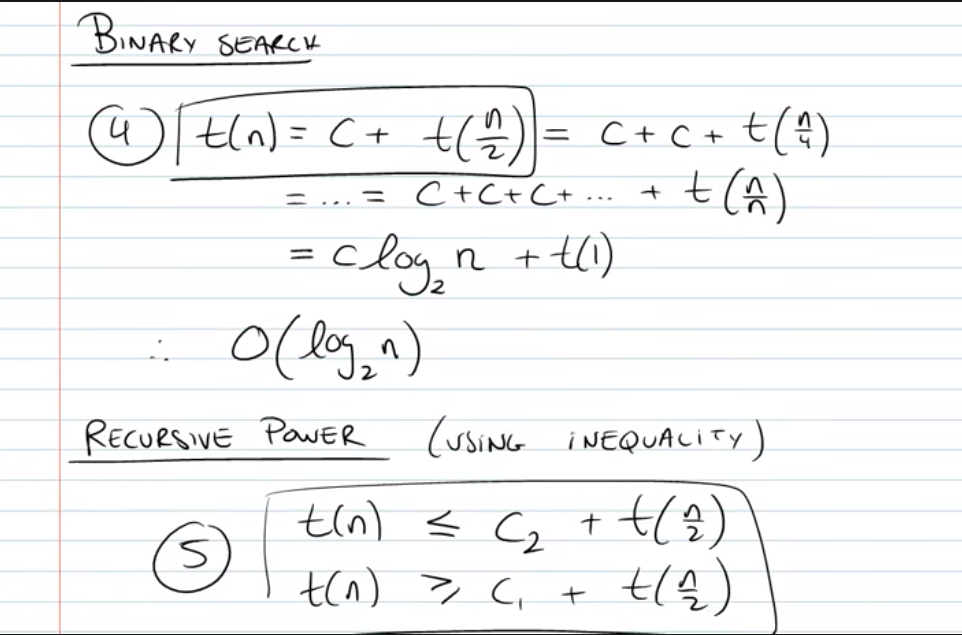 BINARY SEARCH
④ t(n) = C + t(n/2) = C + C + t(n/4)
= ... = C + C + C + ... + t(n/n)
= c log₂ n + t(1)
∴ O(log₂ n)
RECURSIVE POWER (USING INEQUALITY)
⑤ t(n) ≤ C₂ + t(n/2)
t(n) ≥ C₁ + t(n/2)